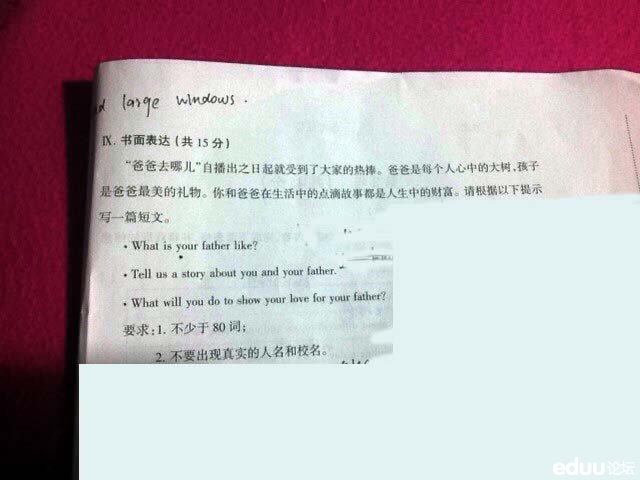 large windows.
Ⅸ. 书面表达(共 15 分)
“爸爸去哪儿”自播出之日起就受到了大家的热捧。爸爸是每个人心中的大树,孩子
是爸爸最美的礼物。你和爸爸在生活中的点滴故事都是人生中的财富。请根据以下提示
写一篇短文。
• What is your father like?
• Tell us a story about you and your father.
• What will you do to show your love for your father?
要求:1. 不少于 80 词;
2. 不要出现真实的人名和校名。
eduu论坛